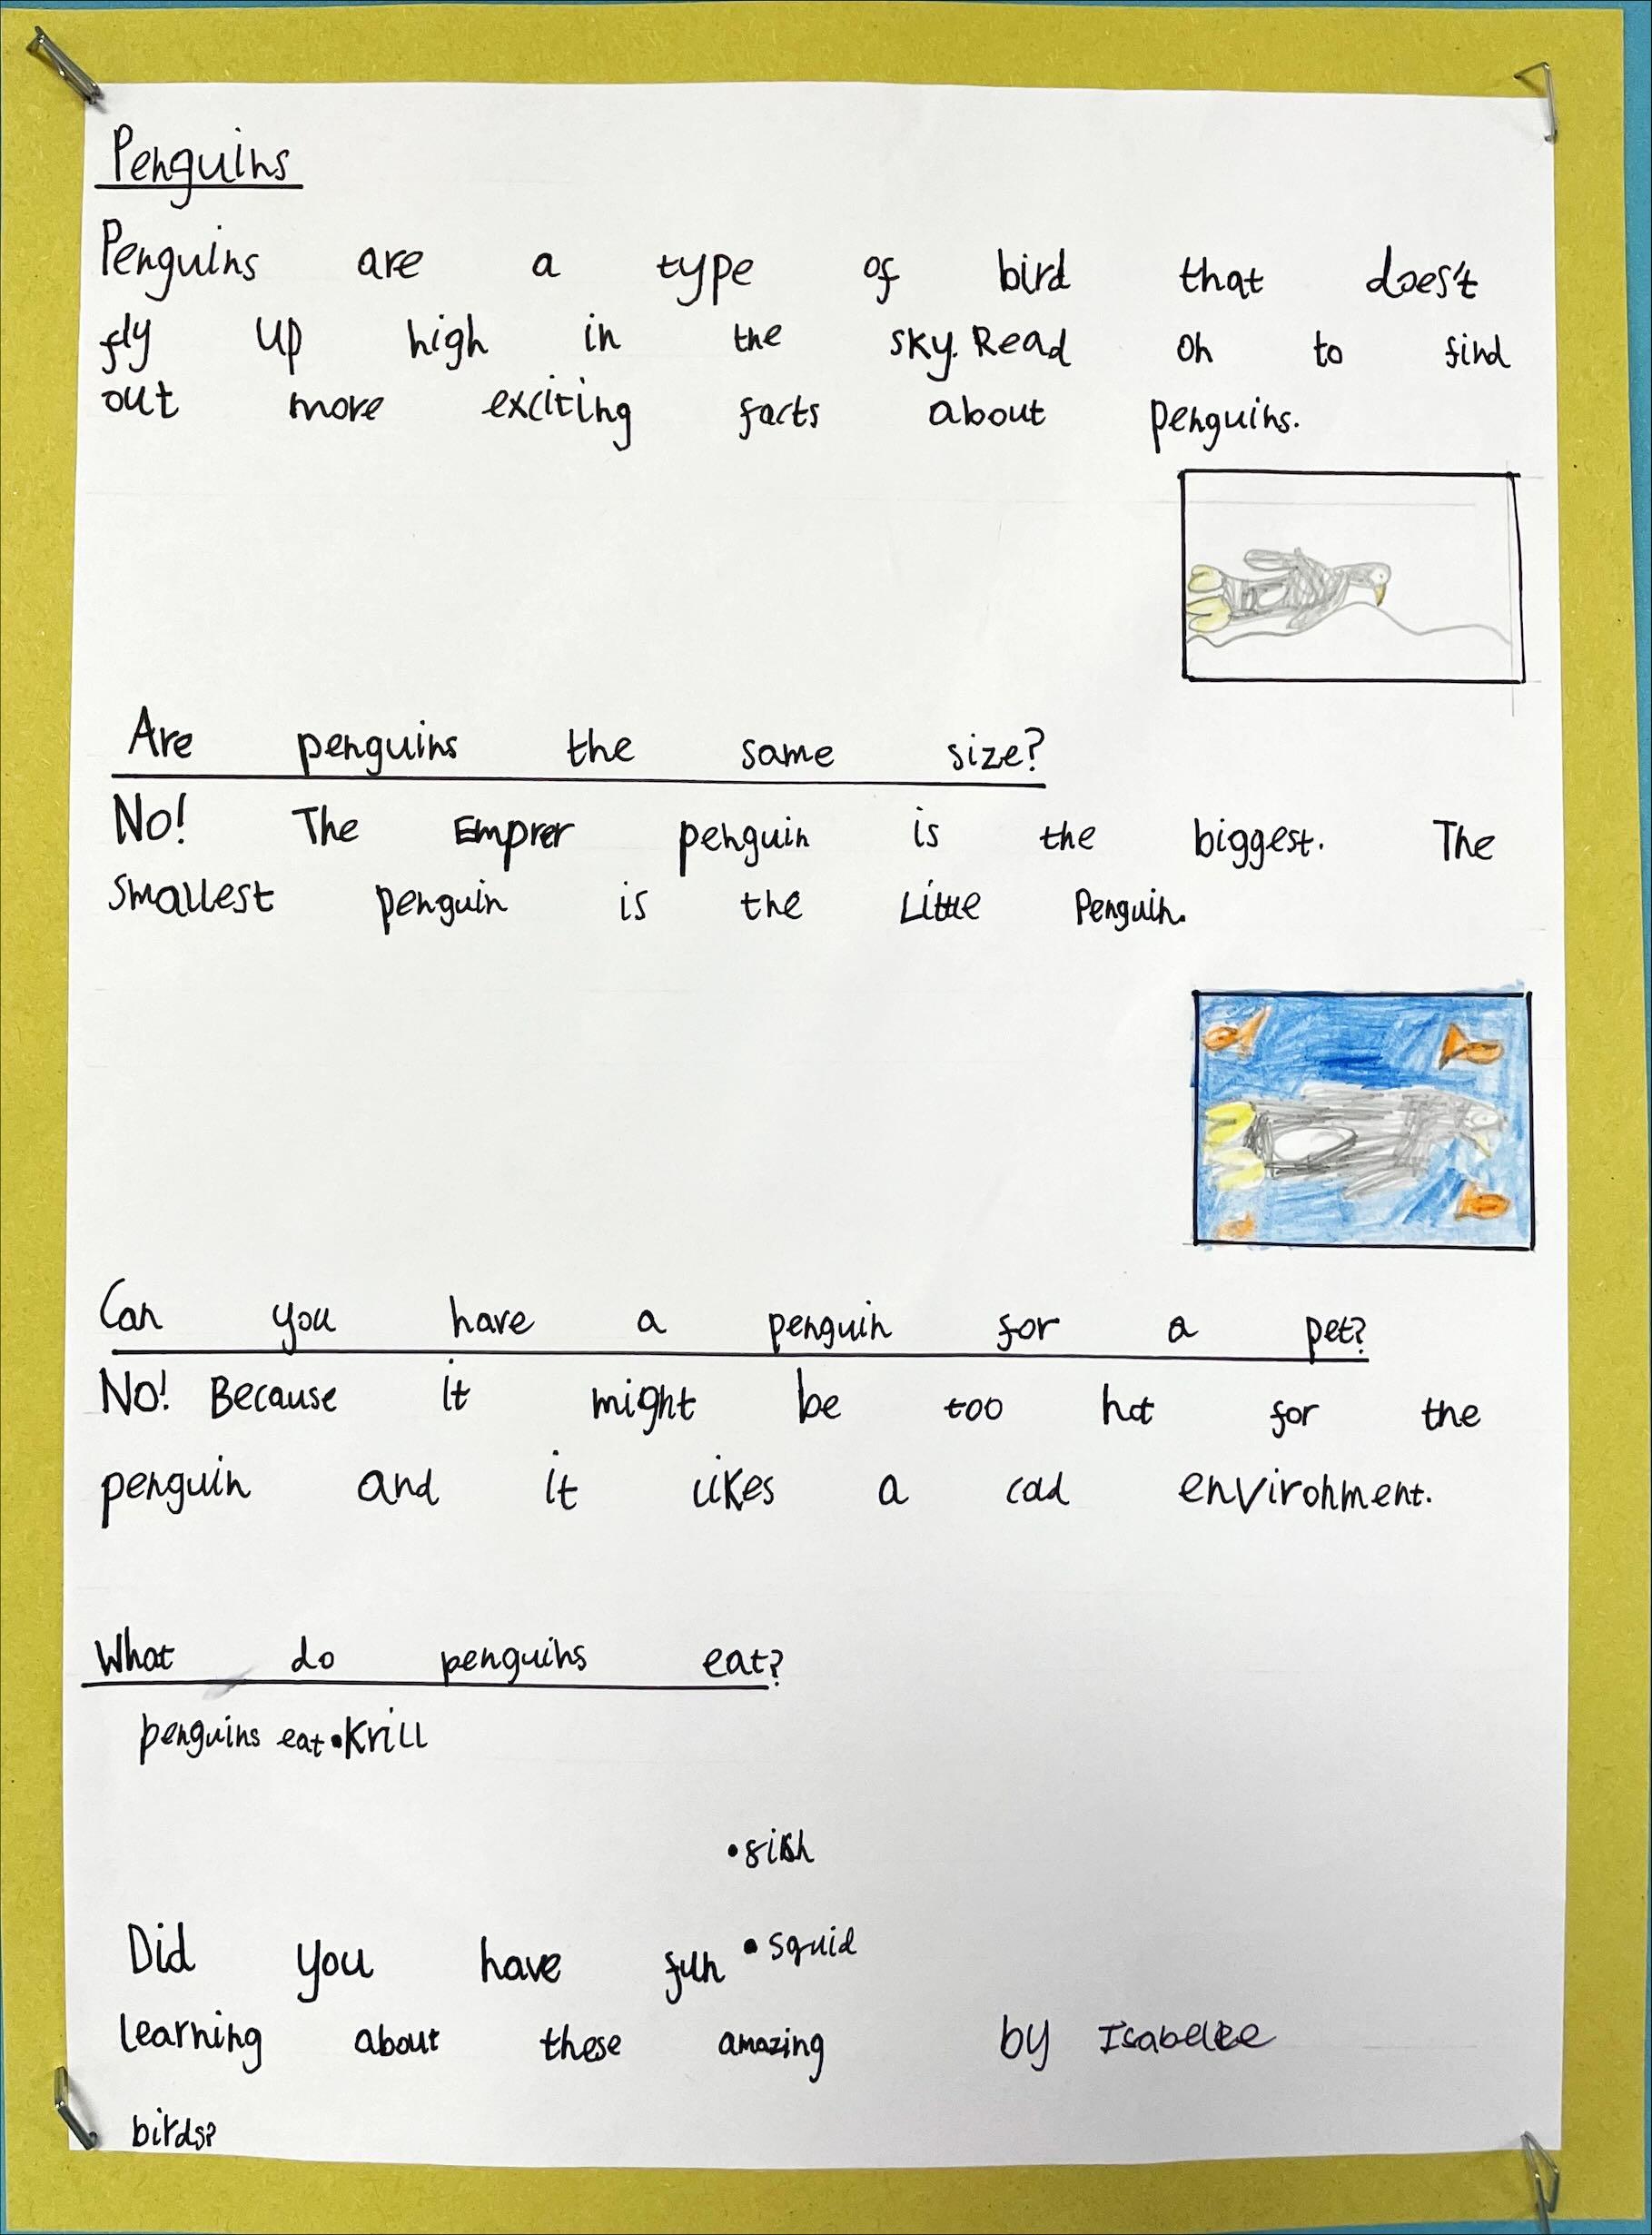 Penguins
Penguins are a type of bird that does't
fly up high in the sky. Read on to find
out more exciting facts about penguins.
Are penguins the same size?
No! The Emprer penguin is the biggest. The
smallest penguin is the Little Penguin.
Can you have a penguin for a pet?
No! Because it might be too hot for the
penguin and it likes a cold environment.
What do penguins eat?
penguins eat •Krill
•fish
•squid
Did you have fun
learning about these amazing
birds?
by Isabelle